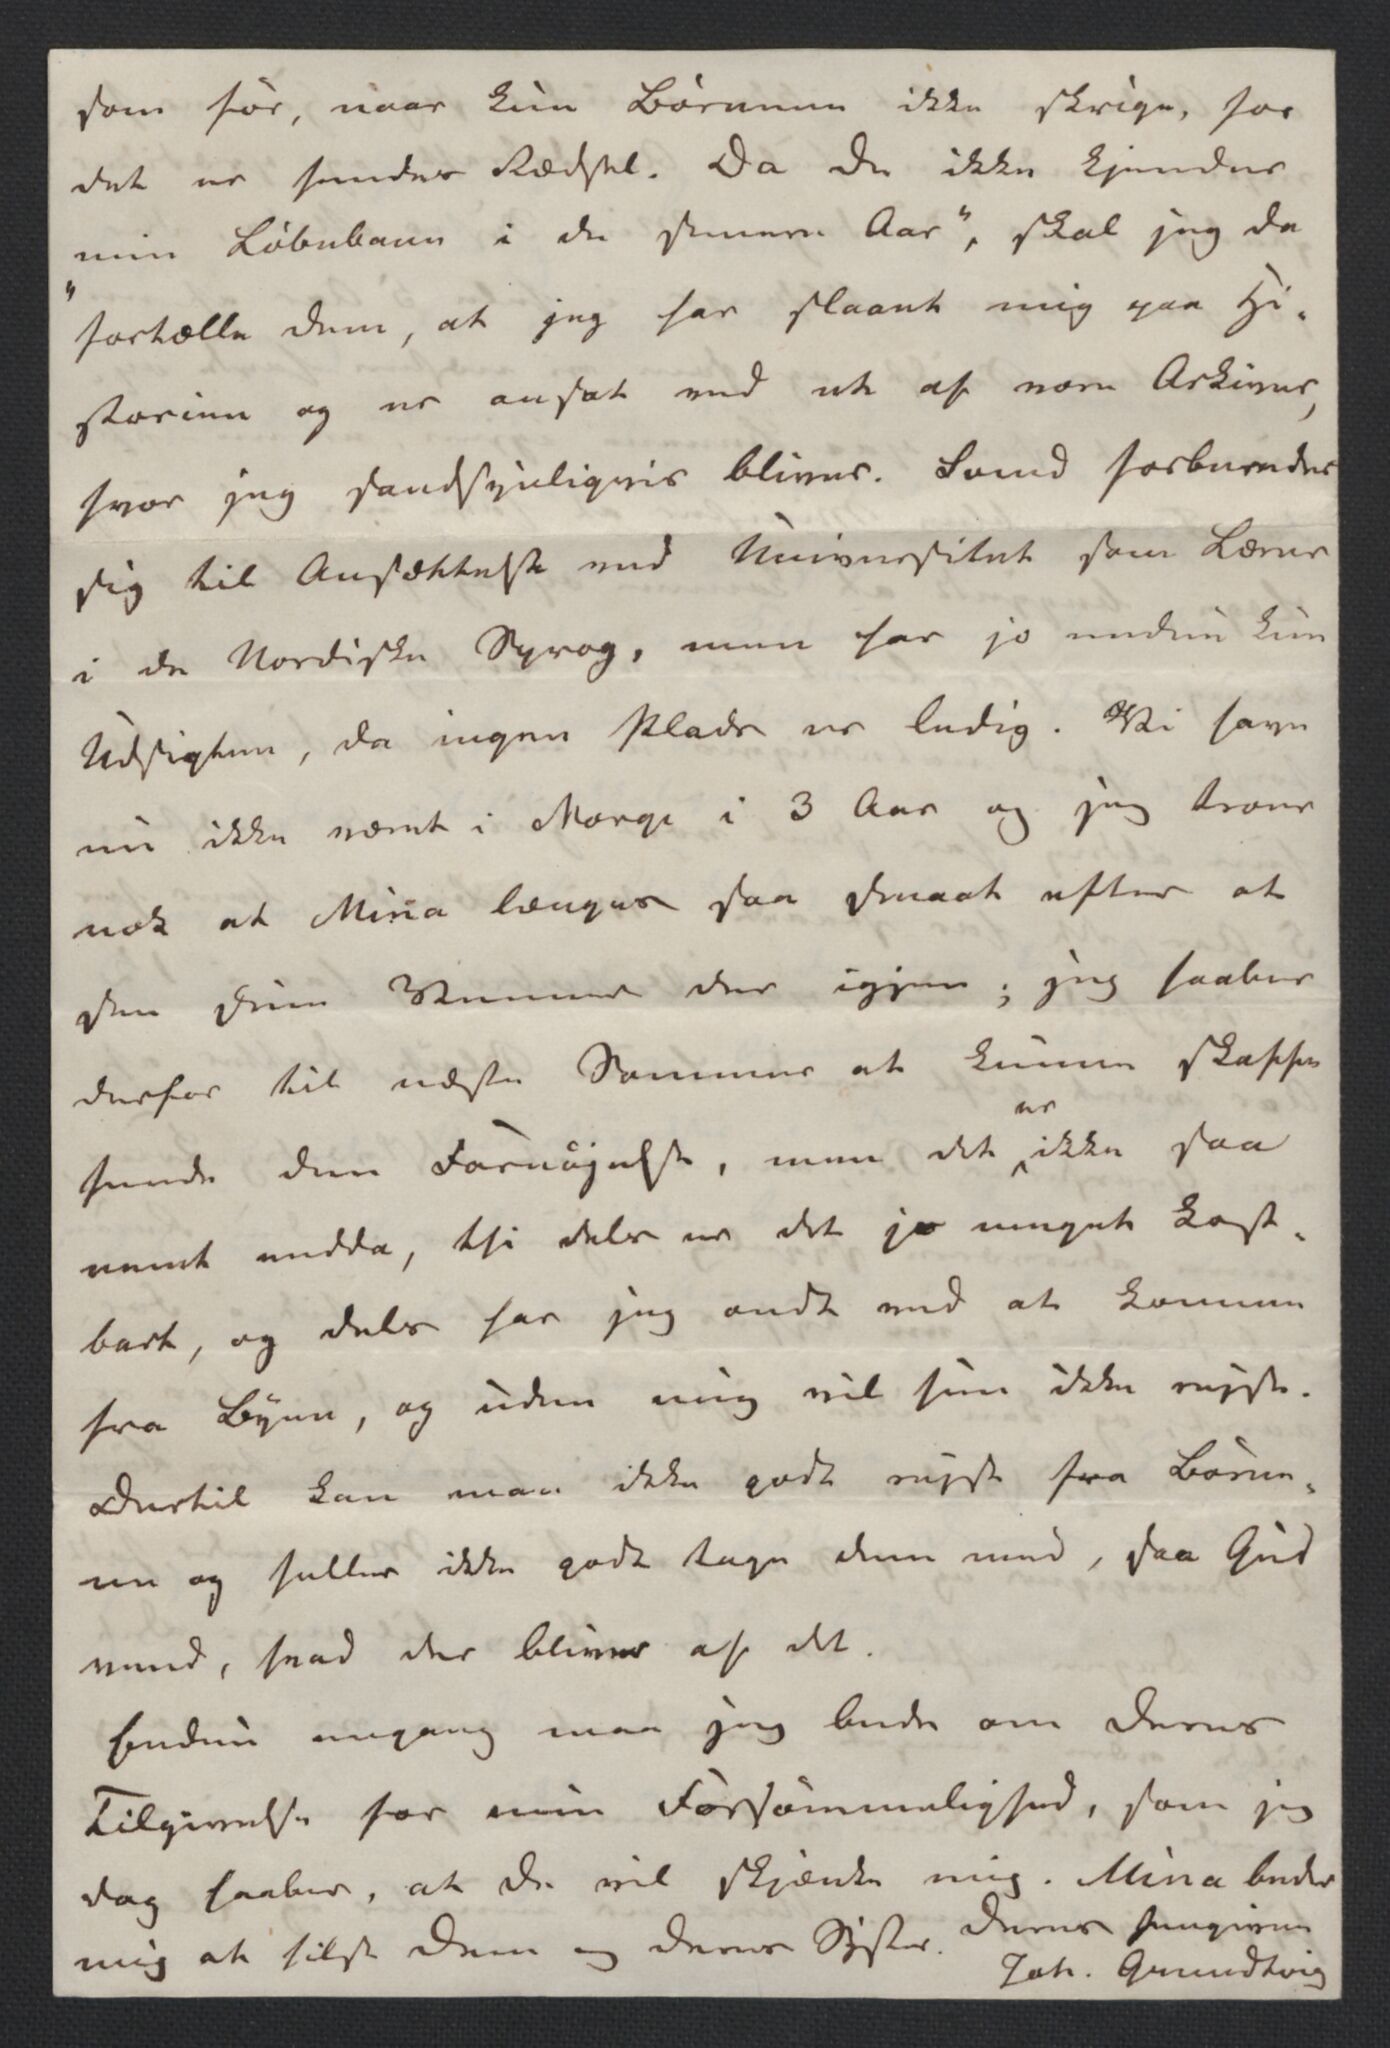 som før, naar kun Børnene ikke skrige, for
det er hendes Rædsel. Da De ikke kjender
min Løbebane i de senere Aar", skal jeg da
"fortælle Dem, at jeg har slaaet mig paa Hi-
storien og er ansat ved et af vore Arkiver,
hvor jeg sandsynligvis bliver. Svend forbereder
sig til Ansættelse ved Universitet som Lærer
i de Nordiske Sprog, men har jo endnu kun
Udsigten, da ingen Plads er ledig. Vi have
nu ikke været i Norge i 3 Aar og jeg troer
nok at Mina længes saa smaat efter at
see sine Venner der igjen; jeg haaber
derfor til næste Sommer at kunne skaffe
hende den Fornøjelse, men det er ikke saa
nemt endda, thi dels er det jo meget kost-
bart, og dels har jeg ondt ved at komme
fra Byen, og uden mig vil hun ikke rejse.
Dertil kan man ikke godt rejse fra Børne-
ne og heller ikke godt tage dem med, saa Gud
veed, hvad der bliver af det.
Endnu engang maa jeg bede om Deres
Tilgivelse for min Forsømmelighed, som jeg
dog haaber, at De vil skjænke mig. Mina beder
mig at hilse Dem og Deres Syster. Deres hengivne
Joh. Grundtvig